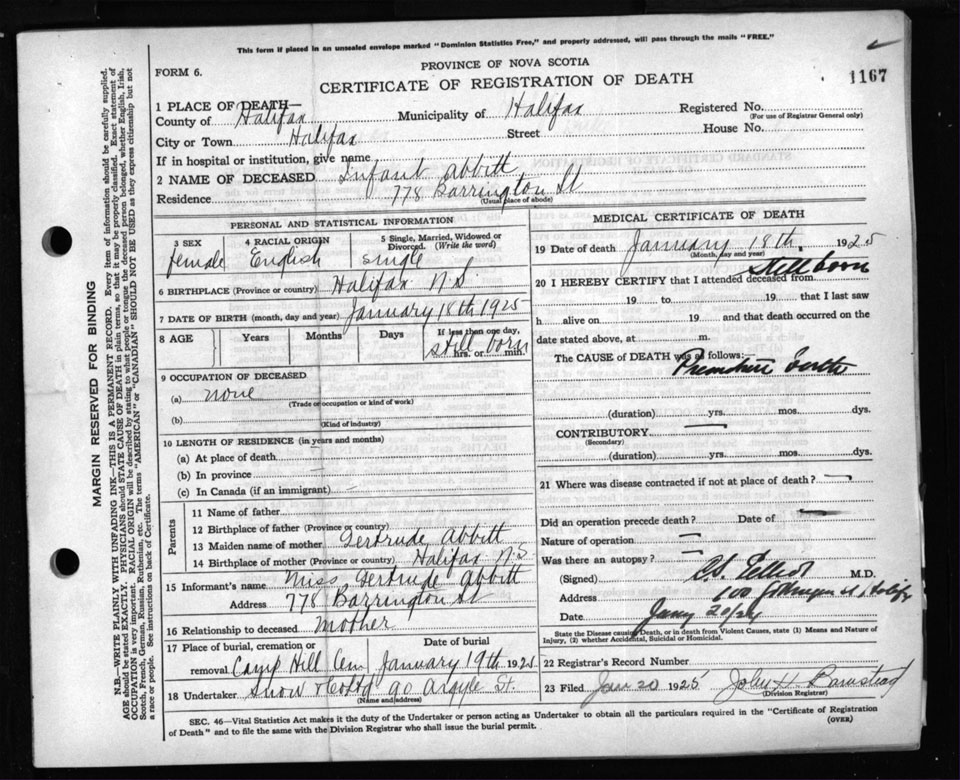 This form if placed in an unsealed envelope marked "Dominion Statistics Free," and properly addressed, will pass through the mails "FREE."
PROVINCE OF NOVA SCOTIA
FORM 6.
CERTIFICATE OF REGISTRATION OF DEATH
1167
1 PLACE OF DEATH—
County of Halifax Municipality of Halifax Registered No.
(For use of Registrar General only)
City or Town Halifax Street House No.
If in hospital or institution, give name
2 NAME OF DECEASED Infant Abbitt
Residence 778 Barrington St
(Usual place of abode)
PERSONAL AND STATISTICAL INFORMATION
3 SEX 4 RACIAL ORIGIN 5 Single, Married, Widowed or Divorced. (Write the word)
female English single
6 BIRTHPLACE (Province or country) Halifax N.S
7 DATE OF BIRTH (month, day and year) January 18th 1925
8 AGE Years Months Days If less than one day, hrs. or min.
still born
9 OCCUPATION OF DECEASED
(a) none
(Trade or occupation or kind of work)
(b)
(Kind of industry)
10 LENGTH OF RESIDENCE (in years and months)
(a) At place of death
(b) In province
(c) In Canada (if an immigrant)
Parents
11 Name of father
12 Birthplace of father (Province or country)
13 Maiden name of mother Gertrude Abbitt
14 Birthplace of mother (Province or country) Halifax N.S.
15 Informant's name Miss Gertrude Abbitt
Address 778 Barrington St
16 Relationship to deceased Mother
17 Place of burial, cremation or removal Date of burial
Camp Hill Cem January 19th 1925
18 Undertaker Snow & Co Ltd 90 Argyle St.
(Name and address)
MEDICAL CERTIFICATE OF DEATH
19 Date of death January 18th, 1925
(Month, day and year)
still born
20 I HEREBY CERTIFY that I attended deceased from
19 to 19 that I last saw
h alive on 19 and that death occurred on the
date stated above, at m.
The CAUSE OF DEATH was as follows:—
Premature birth
(duration) yrs. mos. dys.
CONTRIBUTORY
(Secondary)
(duration) yrs. mos. dys.
21 Where was disease contracted if not at place of death?
Did an operation precede death? Date of
Nature of operation
Was there an autopsy?
(Signed) M.D.
Address 100
Date 20/25
State the Disease causing Death, or in death from Violent Causes, state (1) Means and Nature of Injury, (2) whether Accidental, Suicidal or Homicidal.
22 Registrar's Record Number
23 Filed Jan 20 1925 John H. Barnstead
(Division Registrar)
SEC. 46—Vital Statistics Act makes it the duty of the Undertaker or person acting as Undertaker to obtain all the particulars required in the "Certificate of Registration
of Death" and to file the same with the Division Registrar who shall issue the burial permit. (OVER)
MARGIN RESERVED FOR BINDING
N.B.—WRITE PLAINLY WITH UNFADING INK—THIS IS A PERMANENT RECORD. Every item of information should be carefully supplied.
AGE should be stated EXACTLY. PHYSICIANS should STATE CAUSE OF DEATH in plain terms, so that it may be properly classified. Exact statement of
OCCUPATION is very important. RACIAL ORIGIN will be described by stating to what people or tongue the deceased person belonged, whether English, Irish,
Scotch, French, German, Russian, Ruthenian, etc. The terms "AMERICAN" or "CANADIAN" SHOULD NOT BE USED as they express citizenship but not
a race or people. See instructions on back of Certificate.